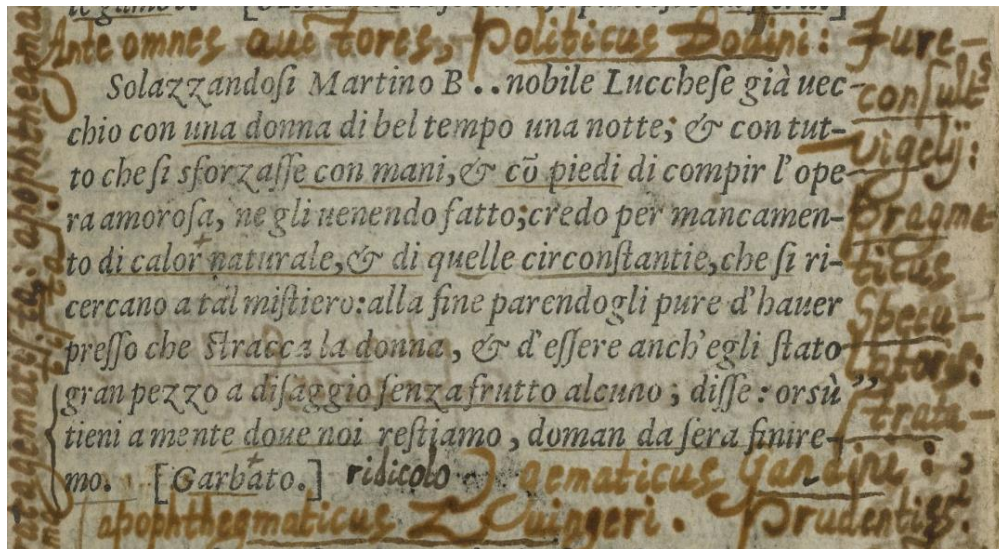 Ante omnes auctores, Politicus Bodini: Jure-
Solazzandoſi Martino B .. nobile Luccheſe già uec-
chio con una donna di bel tempo una notte; & con tut-
to che ſi sforzaſſe con mani, & cõ piedi di compir l'ope-
ra amoroſa, ne gli uenendo fatto; credo per mancamen-
to di calor naturale, & di quelle circonſtantie, che ſi ri-
cercano a tal miſtiero: alla fine parendogli pure d'hauer
preſſo che ſtracca la donna, & d'eſſere anch'egli ſtato
gran pezzo a diſaggio ſenza frutto alcuno; diſſe: orsù
tieni a mente doue noi reſtiamo, doman da ſera finire-
mo. [Garbato.] ridicolo
conſult
Vigelij:
Pragma-
ticus
Specu-
latoris:
ſtrata-
gematicus Gandini:
apophthegmaticus Zuingeri. Prudentiſſ.